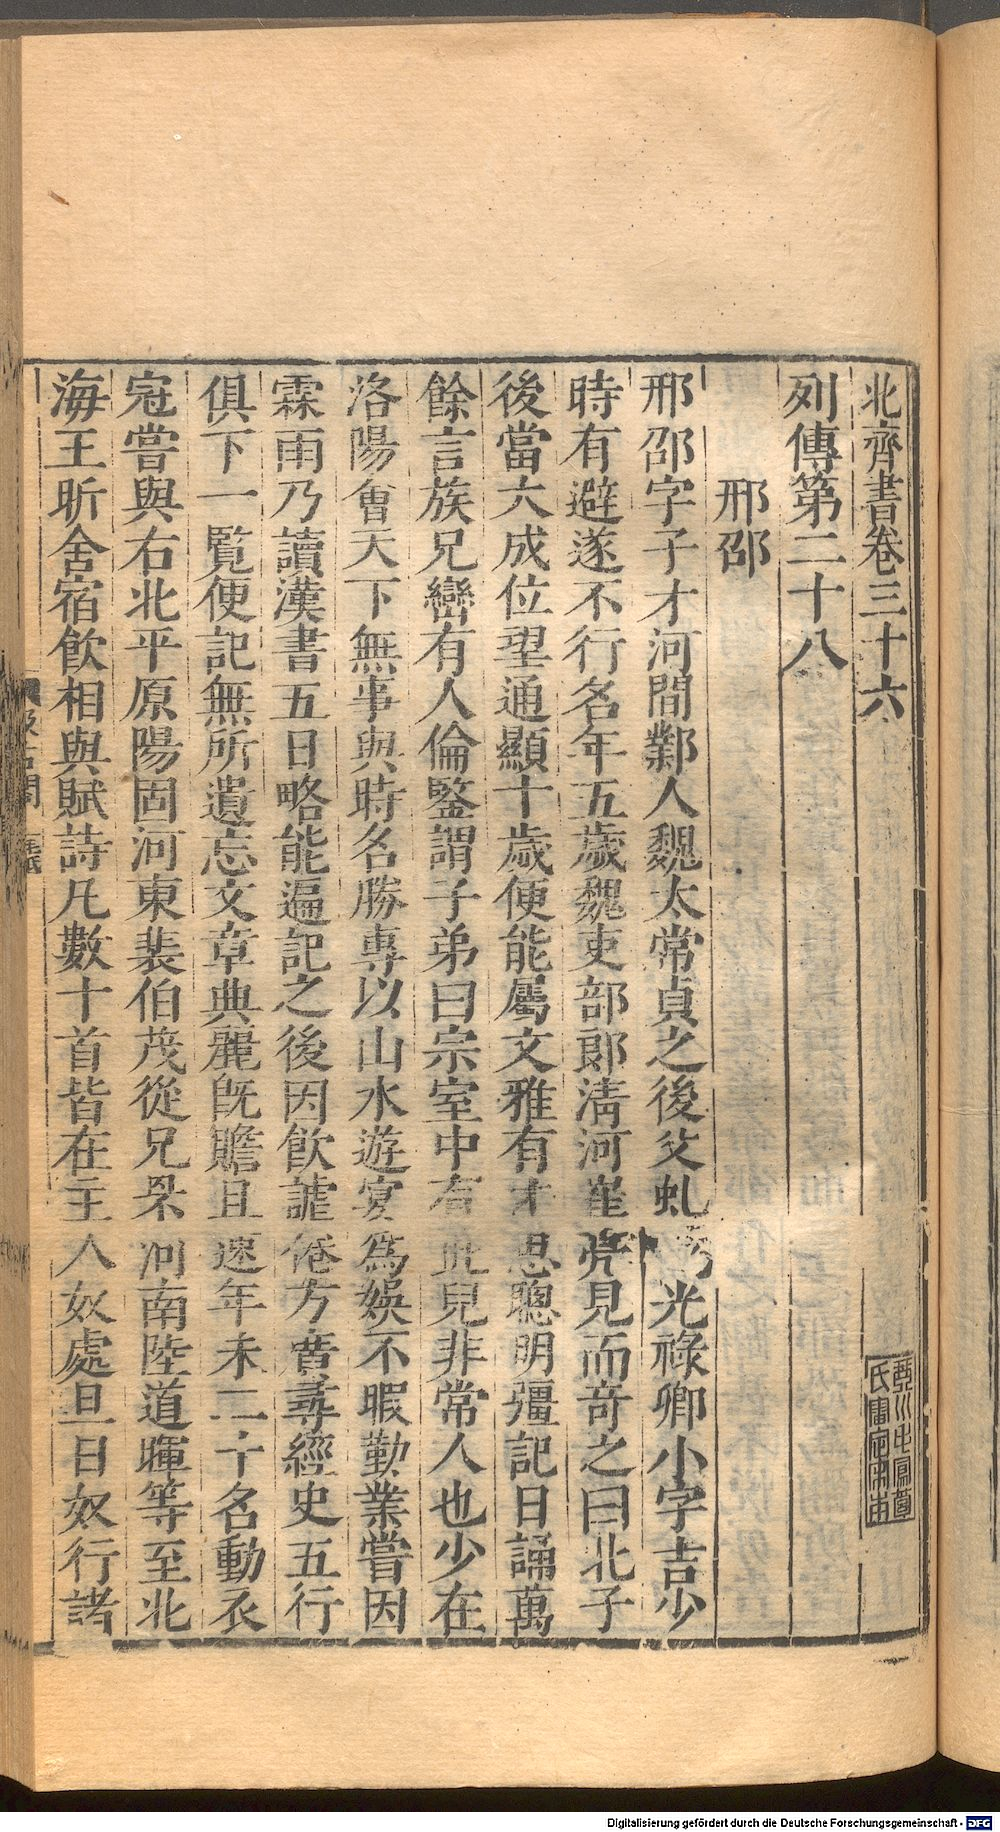 北齊書卷三十六
列傳第二十八
邢邵
邢邵字子才河間鄚人魏太常貞之後父虬光祿卿小字吉少
時有避遂不行名年五歲魏吏部郎淸河崔亮見而奇之曰北子
後當大成位望通顯十歲便能屬文雅有才思聰明彊記日誦萬
餘言族兄巒有人倫鑒謂子弟曰宗室中有此兒非常人也少在
洛陽會天下無事與時名勝專以山水遊宴爲娛不暇勤業嘗因
霖雨乃讀漢書五日略能遍記之後因飮謔倦方廣尋經史五行
俱下一覽便記無所遺忘文章典麗旣贍且速年未二十名動衣
冠嘗與右北平原陽固河東裴伯茂從兄罘河南陸道暉等至北
海王昕舍宿飮相與賦詩凡數十首皆在主人奴處旦日奴行諸
Digitalisierung gefördert durch die Deutsche Forschungsgemeinschaft - DFG